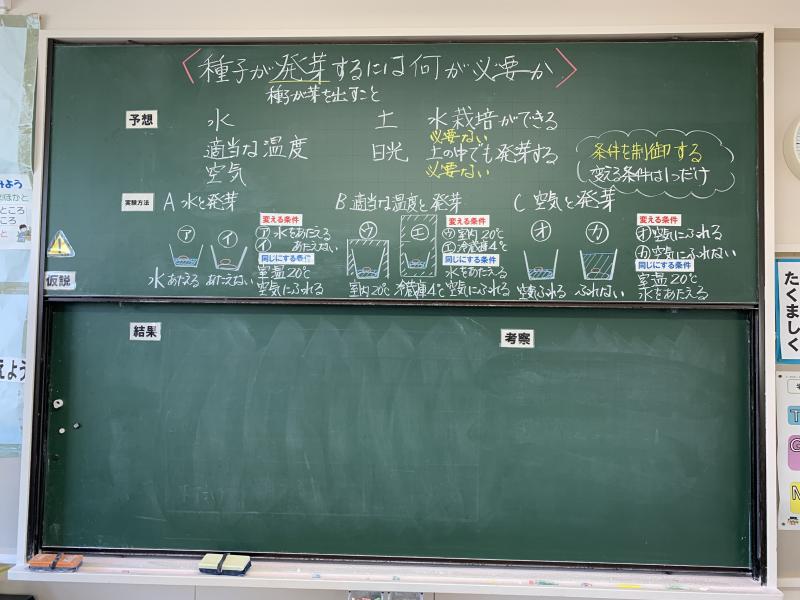 種子が発芽するには何が必要か
種子が芽を出すこと
予想
水
適当な温度
空気
土 水栽培ができる
必要ない
日光 土の中でも発芽する
必要ない
条件を制御する
変える条件は1つだけ
実験方法
A 水と発芽
ア
イ
水あたえる あたえない
変える条件
ア 水をあたえる
イ あたえない
同じにする条件
室温20℃
空気にふれる
B 適当な温度と発芽
ウ
エ
室内20℃ 冷蔵庫4℃
変える条件
ウ 室内20℃
エ 冷蔵庫4℃
同じにする条件
水をあたえる
空気にふれる
C 空気と発芽
オ
カ
空気ふれる ふれない
変える条件
オ 空気にふれる
カ 空気にふれない
同じにする条件
室温20℃
水をあたえる
仮説
結果
考察
たくましく